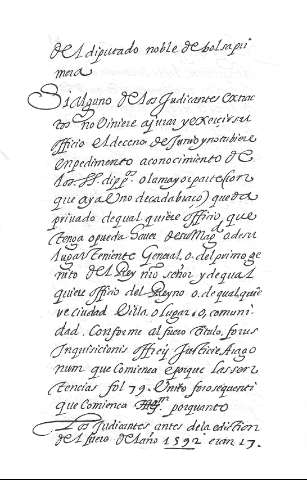 del diputado noble de bolsa pri
mera
Si alguno de los Judicantes extrac
tos no viniere a jurar y exercir su
officio el deceno de Junio y no tubiere
enpedimento a conocimiento de
los SS. dipp.º o la mayor parte (con
que aya el no de cada braço) queda
priuado de qual quiere officio que
tenga o pueda hauer de su Magd. o de su
lugar Teniente General, o del primo ge
nito de el Rey nro señor y de qual
quiere officio del Reyno o de qualquie
re ciudad Villa o lugar, o, comuni
dad. Conforme al fuero titulo, forus
Inquisicionis officij Justicie Arago
num que comiença e porque las sen
tencias fol 79. Vnito foro sequenti
que Comiença porquanto
Los Judicantes antes de la edition
del fuero del año 1592 eran 17.